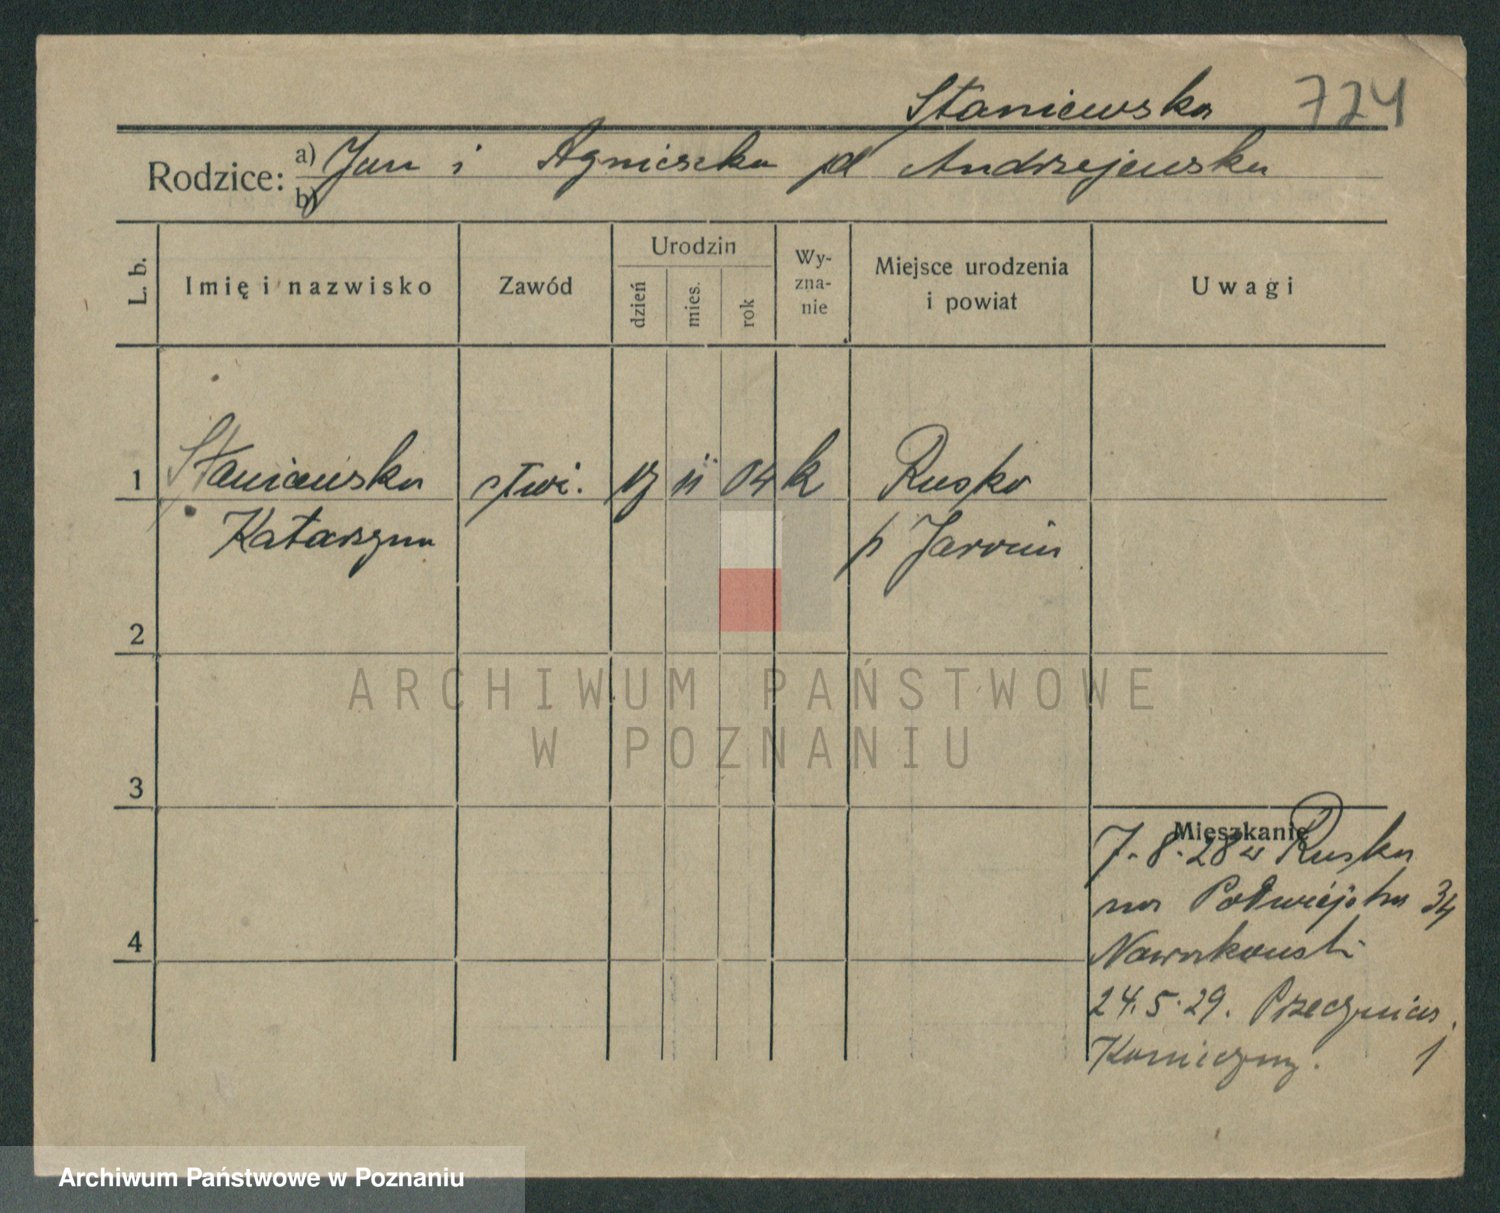 Staniewska 724
Rodzice: a) Jan i Agnieszka pd Andrzejewska
b)
L. b.
Imię i nazwisko
Zawód
Urodzin
dzień
mies.
rok
Wy-
zna-
nie
Miejsce urodzenia
i powiat
Uwagi
1 Staniewska służ. 11 04 k Rusko
Katarzyna p Jarocin
2
ARCHIWUM PAŃSTWOWE
W POZNANIU
3
Mieszkanie
7.8.28 w Ruska
na Podwiejska 34
Nawrkowski
4
24.5.29. Przecznica
Konieczny. 1
Archiwum Państwowe w Poznaniu